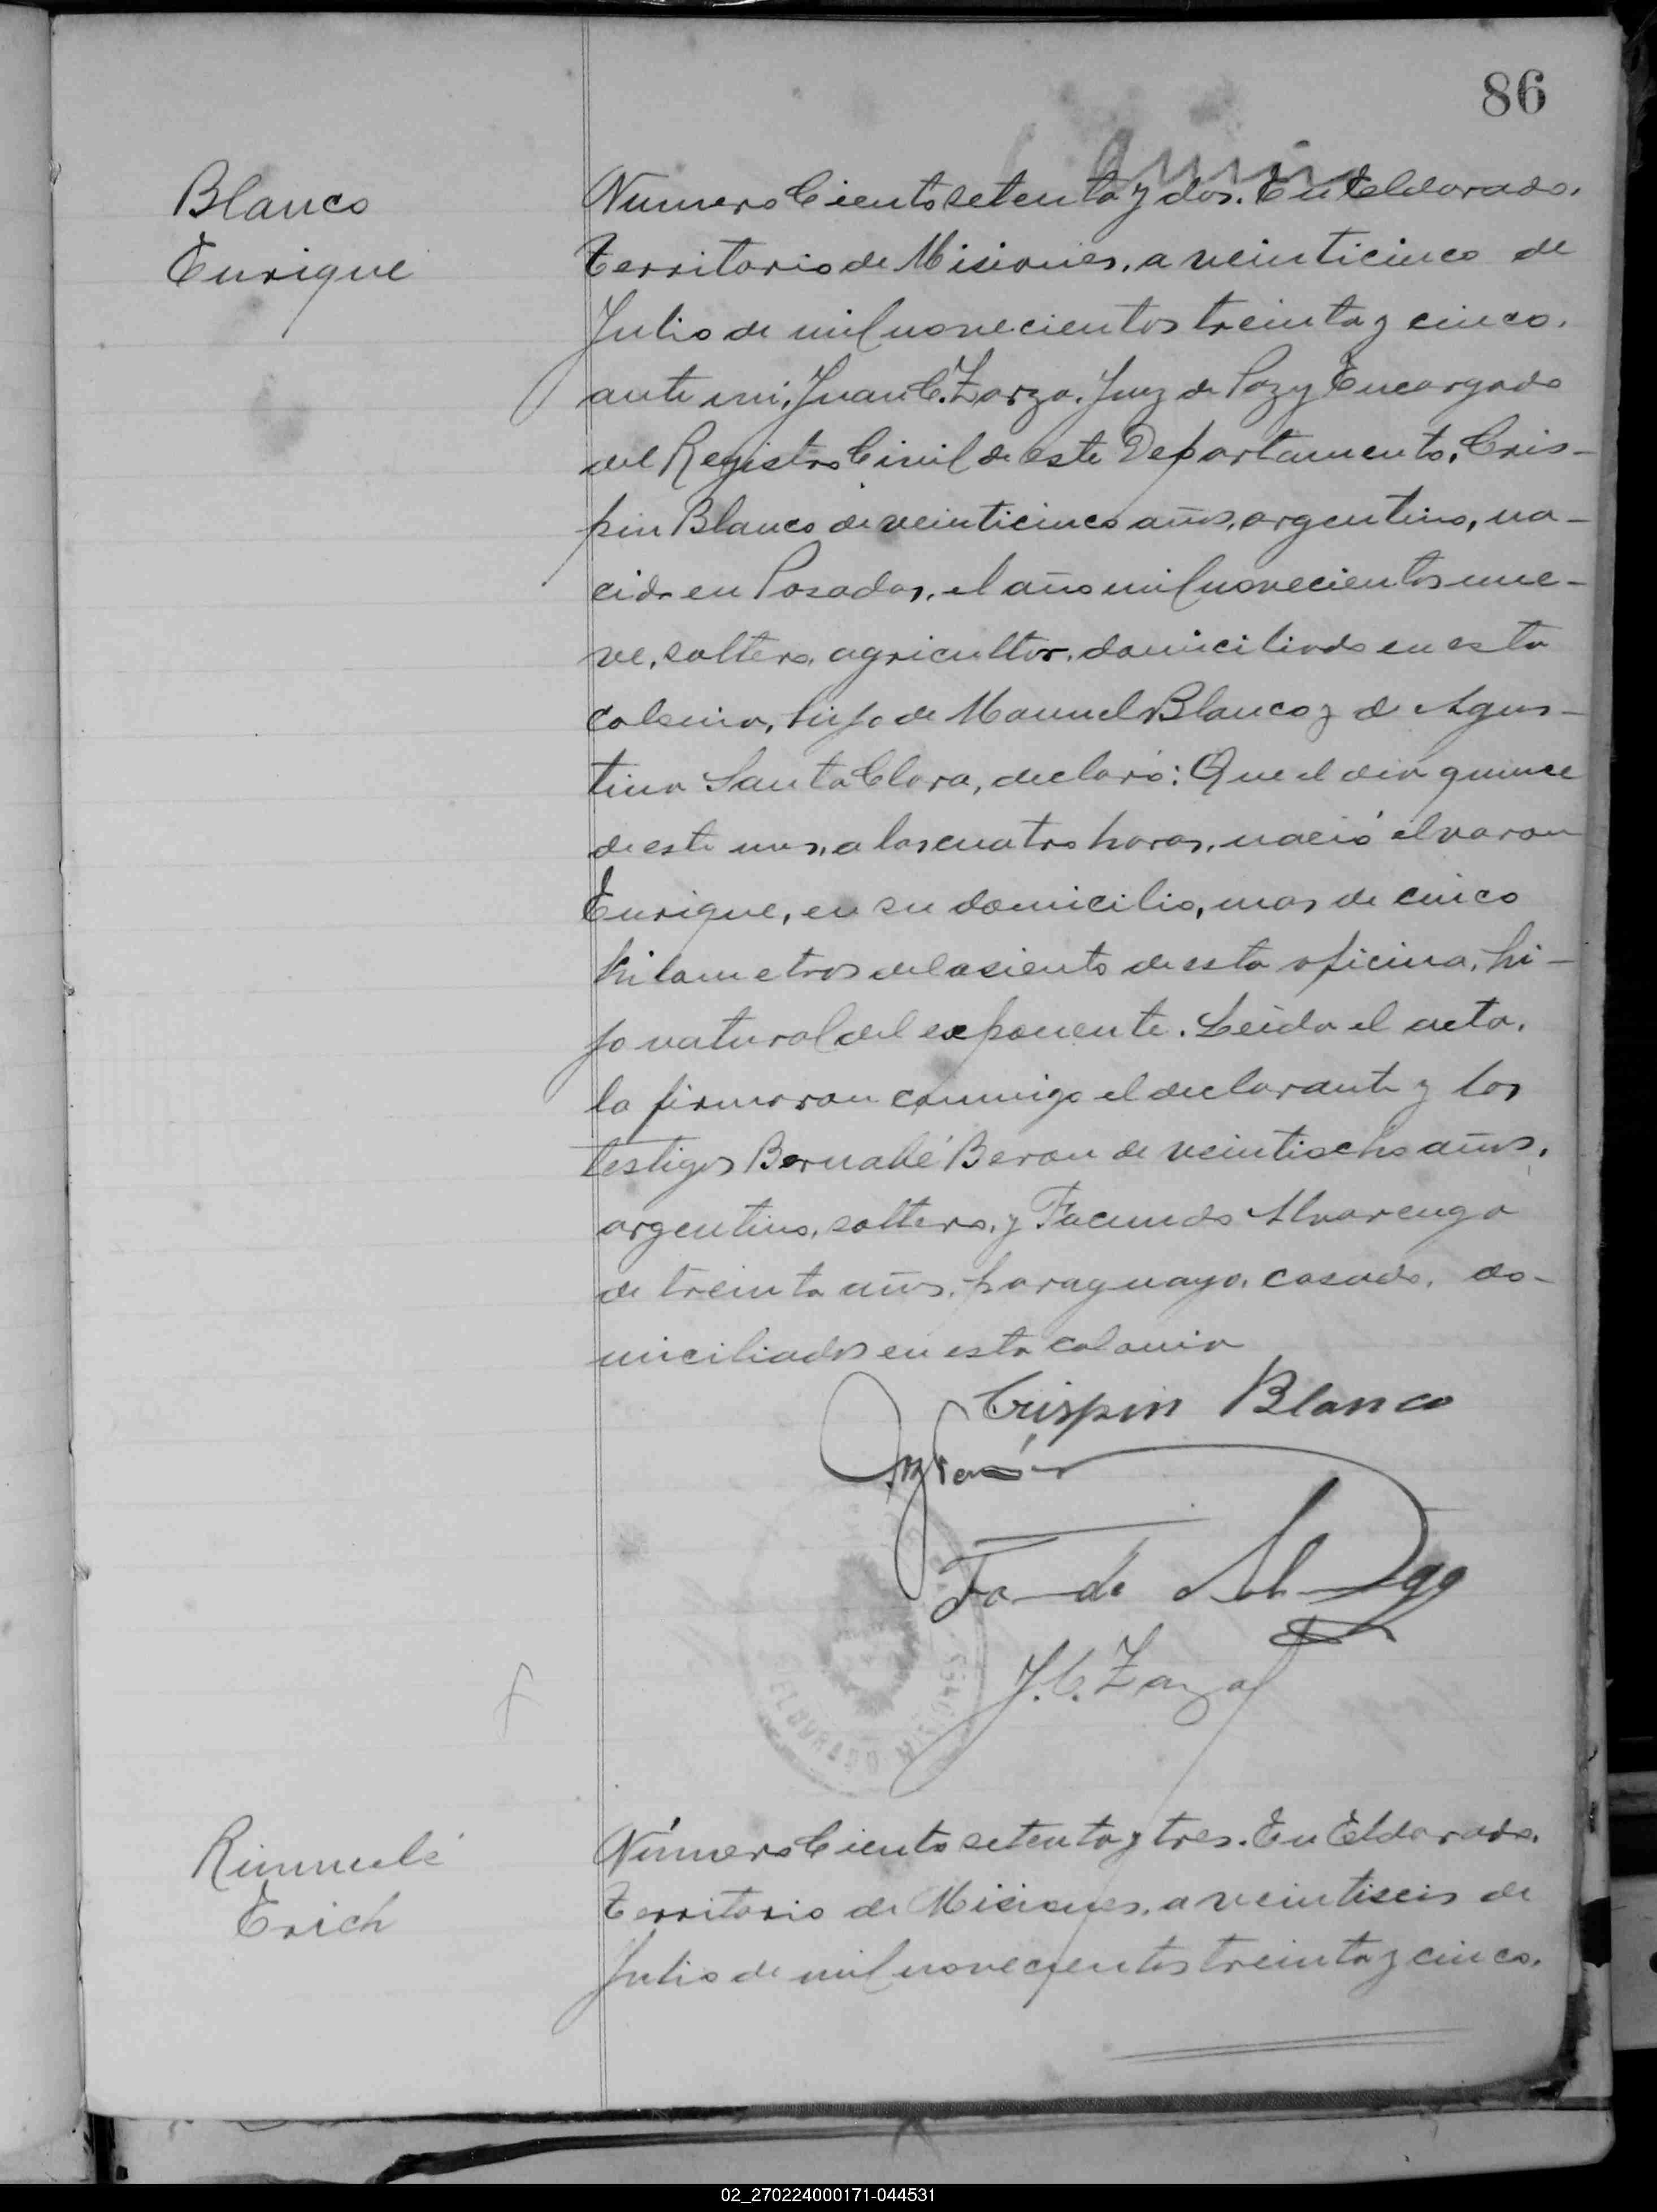 86
Blanco
Enrique
Número Ciento setenta y dos. En Eldorado,
Territorio de Misiones, a veinticinco de
Julio de mil novecientos treinta y cinco,
ante mi, Juan C. Zarza, Juez de Paz y Encargado
del Registro Civil de este Departamento, Cris-
pin Blanco de veinticinco años, argentino, na-
cido en Posadas, el año mil novecientos nue-
ve, soltero, agricultor, domiciliado en esta
Colonia, hijo de Manuel Blanco y de Agus-
tina Santa Clara, declaró: Que el dia quince
de este mes, a las cuatro horas, nació el varon
Enrique, en su domicilio, mas de cinco
kilometros del asiento de esta oficina, hi-
jo natural del exponente. Leida el acta,
la firmaron conmigo el declarante y los
testigos Bernabé Beron de veintiocho años,
argentino, soltero, y Facundo Alvarenga
de treinta años, paraguayo, casado, do-
miciliados en esta colonia
Crispin Blanco
J. C. Zarza
EL DORADO
Rimmelé
Erich
Número Ciento setenta y tres. En Eldorado,
Territorio de Misiones, a veintiseis de
Julio de mil novecientos treinta y cinco,
02_270224000171-044531